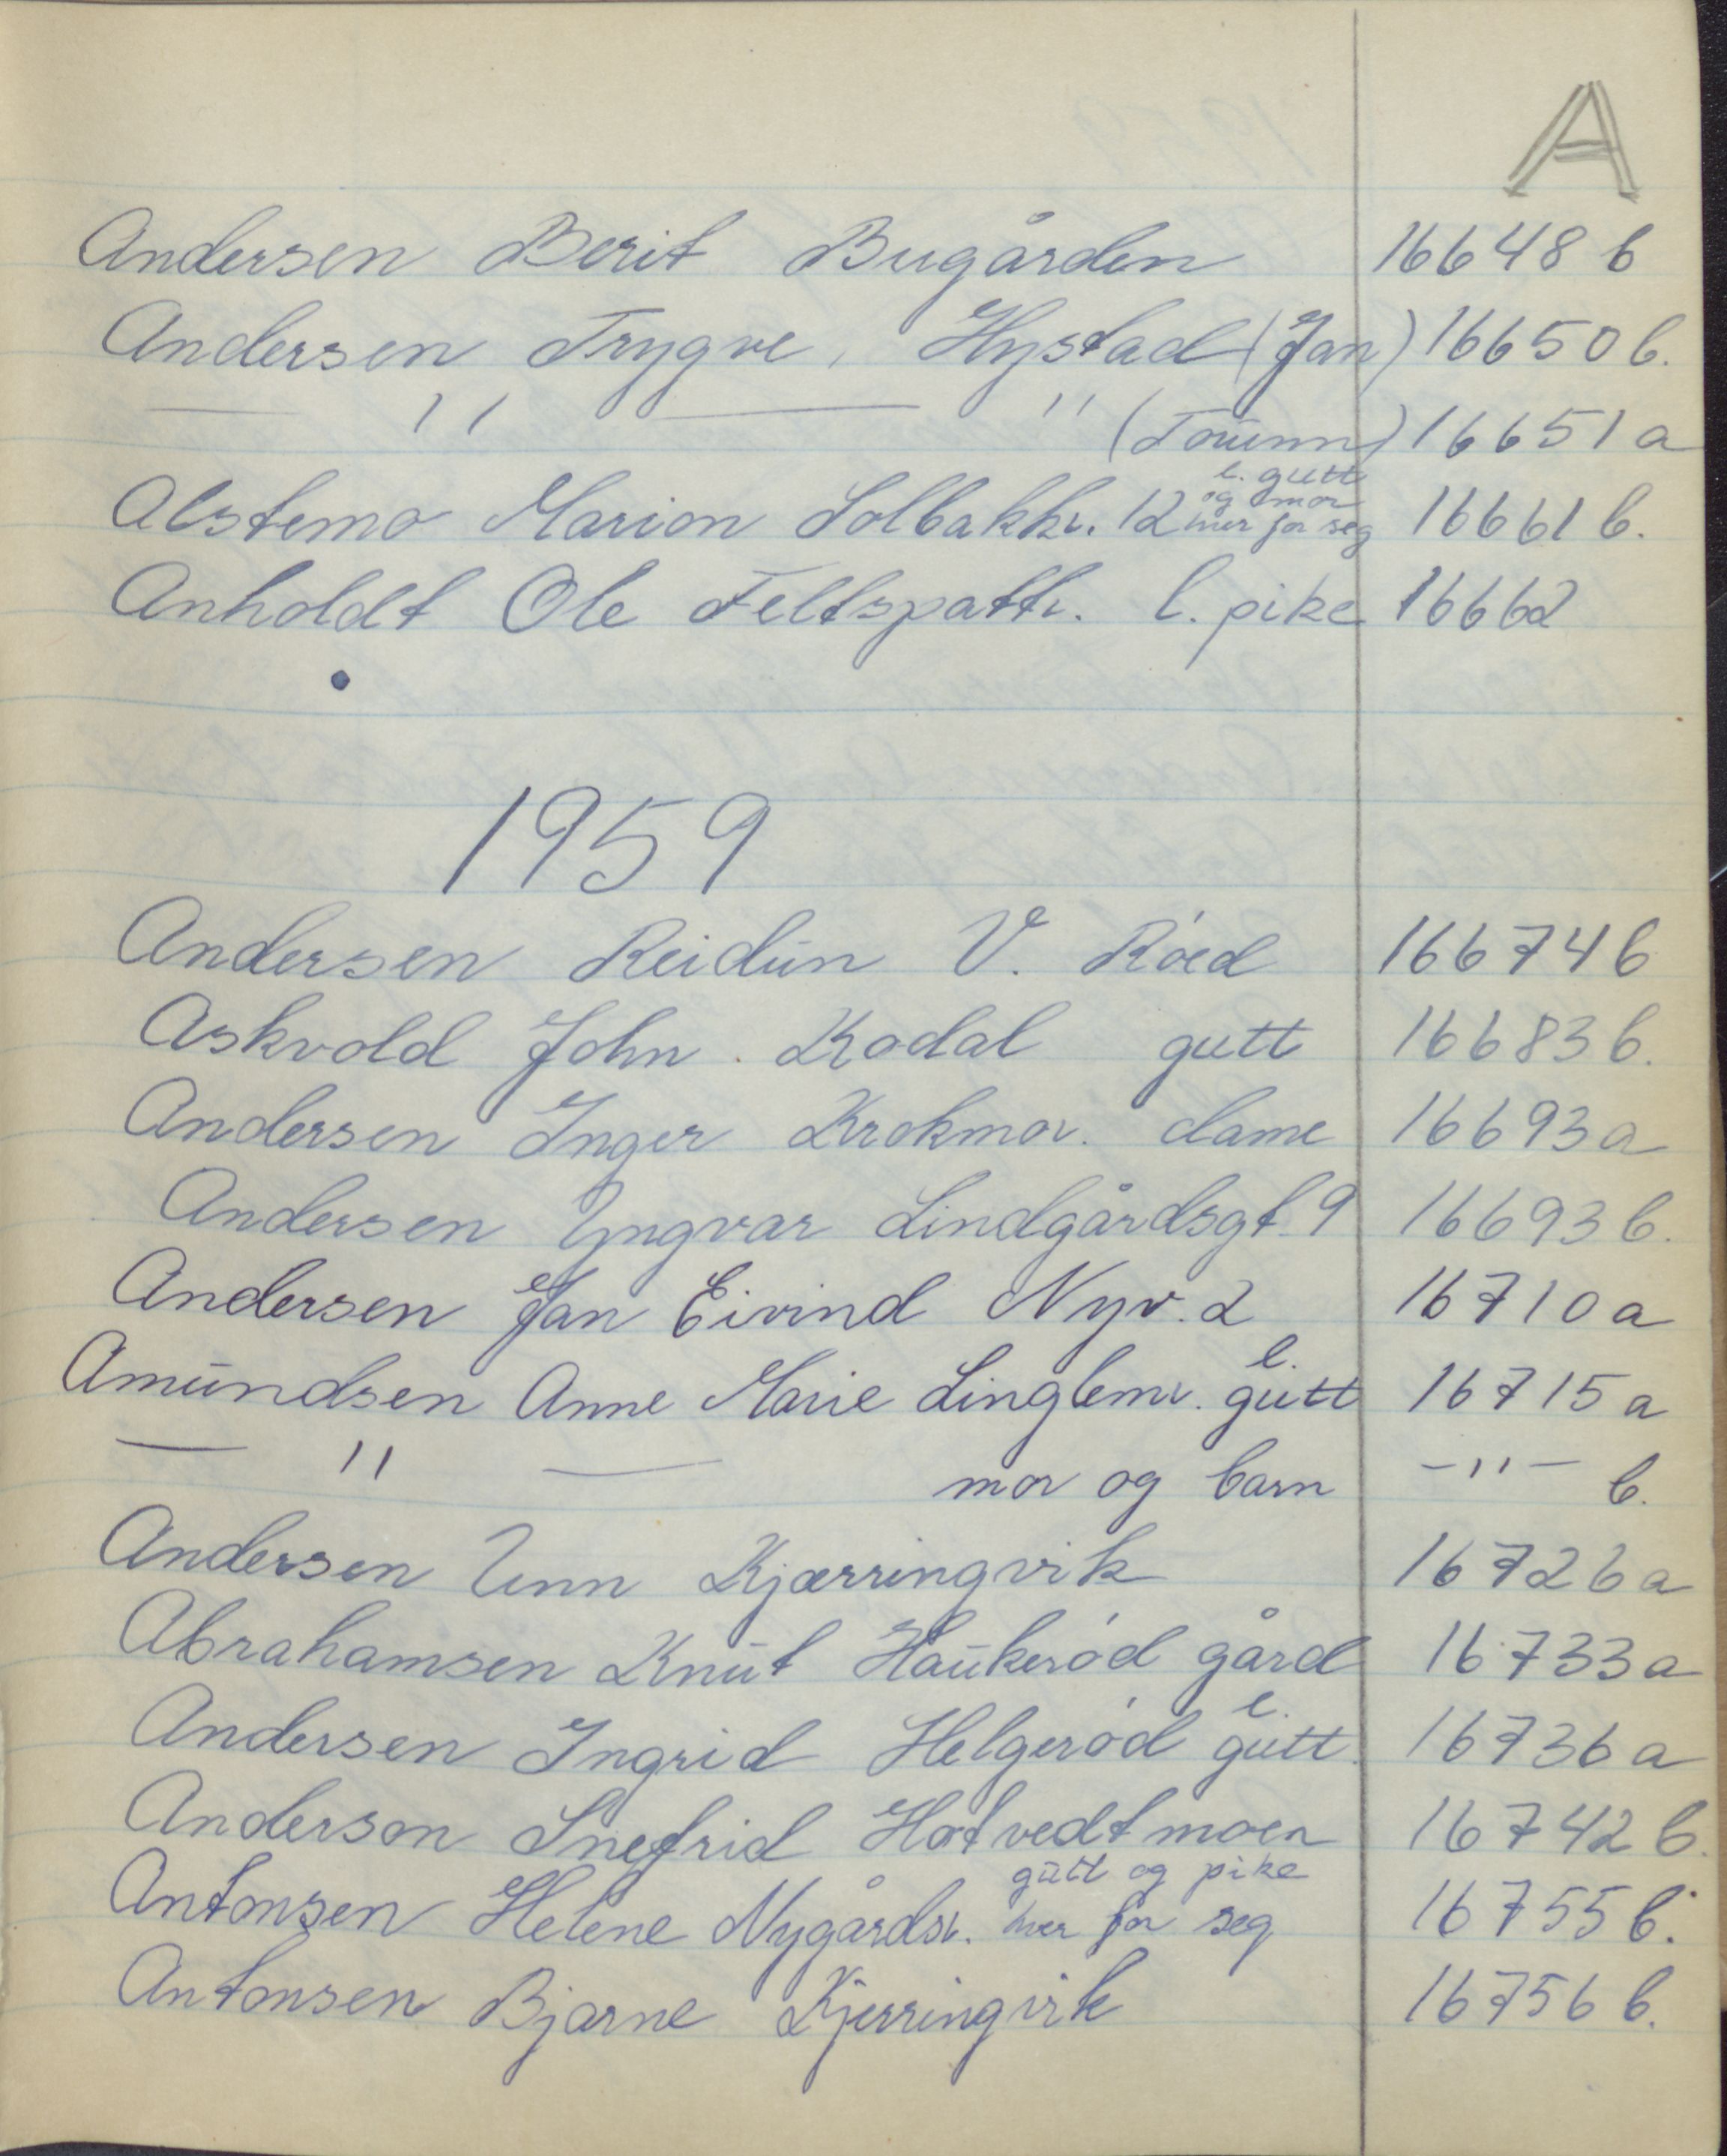 A
Andersen Berit Bugården 16648 b
Andersen Trygve, Hystad (Jan) 16650 b.
— " — " (Tounn) 16651 a
l. gutt
og mor
Alstemo Marion Solbakkv. 12 hver for seg 16661 b.
Anholdt Ole Feltspattv. l. pike 16662
1959
Andersen Reidun V. Röed 16674 b
Askvold John. Kodal gutt 16683 b.
Andersen Inger Krokmov. dame 16693 a
Andersen Yngvar Lindgårdsgt. 9 16693 b.
Andersen Jan Eivind Nyv. 2 16710 a
l.
Amundsen Anne Marie Linglemv. gutt 16715 a
— " — mor og barn — " — b.
Andersen Unn Kjærringvik 16726 a
Abrahamsen Knut Haukeród gård 16733 a
l.
Andersen Ingrid Helgeród gutt 16736 a
Anderson Snefrid Hotvedtmoen 16742 b.
gutt og pike
Antonsen Helene Nygårdsv. hver for seg 16755 b.
Antonsen Bjarne Kjerringvik 16756 b.